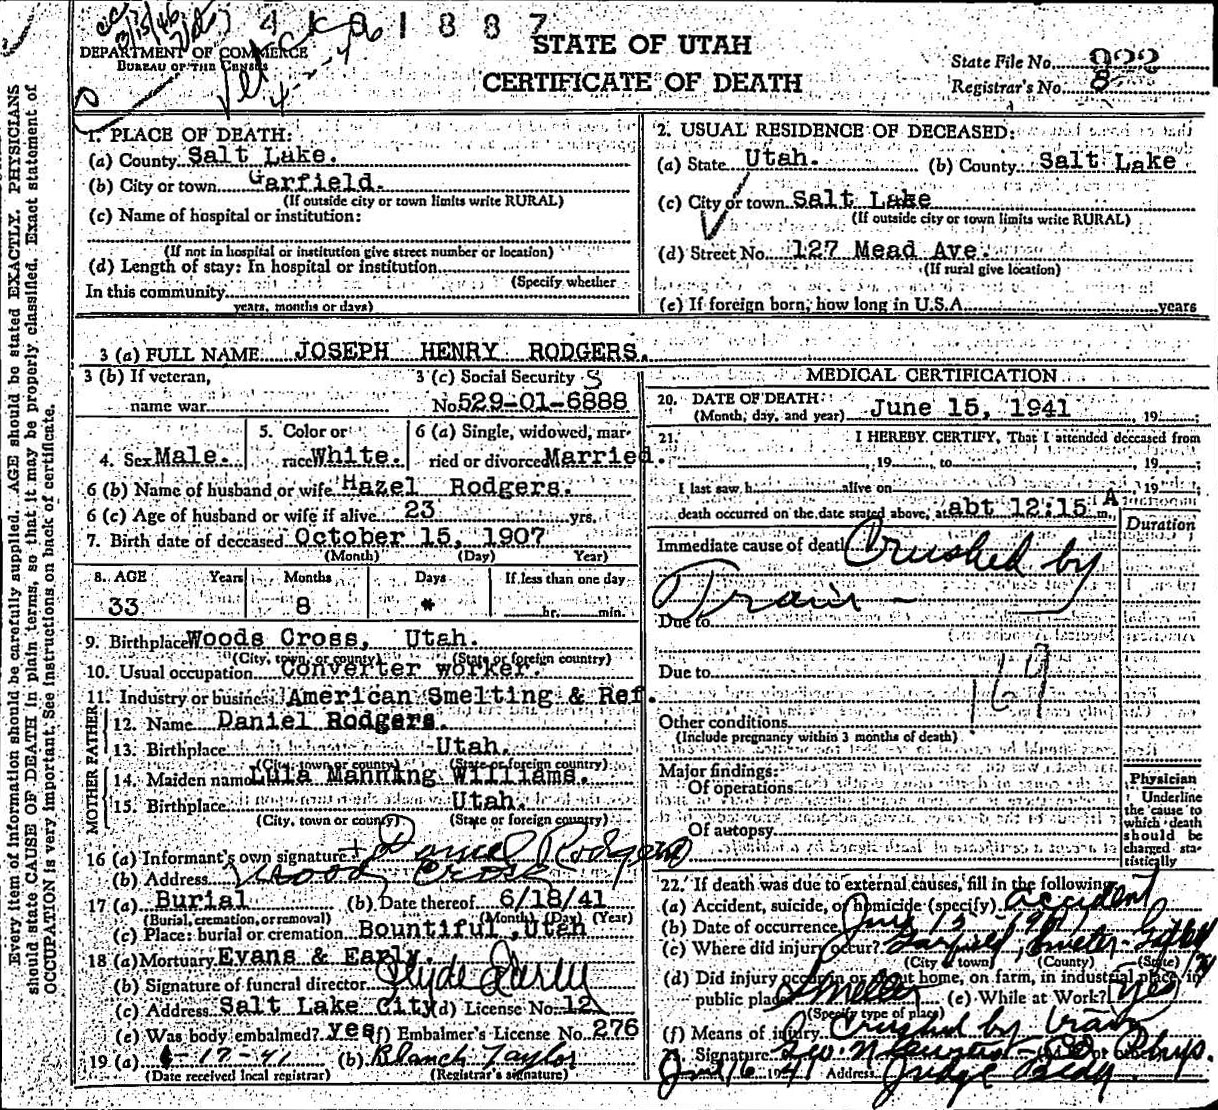 41 01887
DEPARTMENT OF COMMERCE
BUREAU OF THE CENSUS
STATE OF UTAH
CERTIFICATE OF DEATH
State File No. 822
Registrar's No. 8
Every item of information should be carefully supplied. AGE should be stated EXACTLY. PHYSICIANS
should state CAUSE OF DEATH in plain terms, so that it may be properly classified. Exact statement of
OCCUPATION is very important. See instructions on back of certificate.
1. PLACE OF DEATH:
(a) County Salt Lake.
(b) City or town Garfield.
(If outside city or town limits write RURAL)
(c) Name of hospital or institution:
(If not in hospital or institution give street number or location)
(d) Length of stay: In hospital or institution
(Specify whether
In this community
years, months or days)
2. USUAL RESIDENCE OF DECEASED:
(a) State Utah. (b) County Salt Lake
(c) City or town Salt Lake
(If outside city or town limits write RURAL)
(d) Street No. 127 Mead Ave.
(If rural give location)
(e) If foreign born, how long in U.S.A. years
3 (a) FULL NAME JOSEPH HENRY RODGERS.
3 (b) If veteran,
name war
3 (c) Social Security
No. 529-01-6888
4. Sex Male.
5. Color or
race White.
6 (a) Single, widowed, mar-
ried or divorced Married.
6 (b) Name of husband or wife Hazel Rodgers.
6 (c) Age of husband or wife if alive 23 yrs.
7. Birth date of deceased October 15, 1907
(Month) (Day) Year)
8. AGE Years Months Days If less than one day
33 8 * hr. min.
9. Birthplace Woods Cross, Utah.
(City, town, or county) (State or foreign country)
10. Usual occupation Converter worker.
11. Industry or business American Smelting & Ref.
FATHER
12. Name Daniel Rodgers.
13. Birthplace Utah.
(City, town or county) (State or foreign country)
MOTHER
14. Maiden name Lula Manning Williams.
15. Birthplace Utah.
(City, town or county) (State or foreign country)
16 (a) Informant's own signature + Daniel Rodgers
(b) Address Woods Cross
17 (a) Burial (b) Date thereof 6/18/41
(Burial, cremation, or removal) (Month) (Day) (Year)
(c) Place: burial or cremation Bountiful, Utah
18 (a) Mortuary Evans & Early.
(b) Signature of funeral director Clyde Early
(c) Address Salt Lake City (d) License No. 12
(e) Was body embalmed? yes (f) Embalmer's License No. 276
19 (a) 6-17-41 (b) Blanch Taylor
(Date received local registrar) (Registrar's signature)
MEDICAL CERTIFICATION
20. DATE OF DEATH:
(Month, day, and year) June 15, 1941, 19 ;
21. I HEREBY CERTIFY, That I attended deceased from
, 19 , to , 19 ;
I last saw h alive on , 19 ;
death occurred on the date stated above, at abt 12:15 A m.
Duration
Immediate cause of death Crushed by
Train -
Due to
Due to
169
Other conditions
(Include pregnancy within 3 months of death)
Major findings:
Of operations
Of autopsy
Physician
Underline
the cause to
which death
should be
charged sta-
tistically
22. If death was due to external causes, fill in the following
(a) Accident, suicide, or homicide (specify) accident
(b) Date of occurrence June 15 - 1941
(c) Where did injury occur? Garfield, Smelter
(City or town) (County) (State)
(d) Did injury occur in or about home, on farm, in industrial place, in
public place? Smelter (e) While at Work? Yes
(Specify type of place)
(f) Means of injury Crushed by train
Signature
Address Judge Bldg.